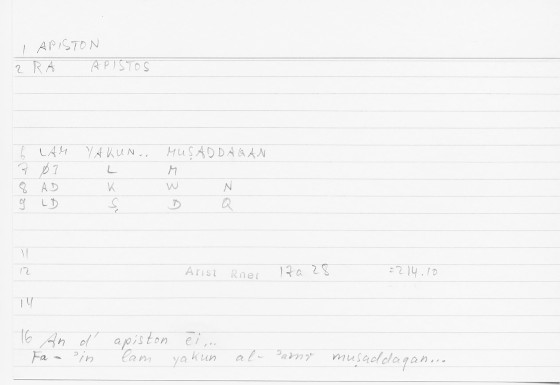 1 APISTON
2 RA APISTOS
6 LAM YAKUN.. MUṢADDAQAN
7 ØT L M
8 AD K W N
9 LD Ṣ D Q
11
12 Arist Rhet 17a.28 =214.10
14
16 An d' apiston ēi...
Fa- ʾin lam yakun al- ʾamr muṣaddaqan...